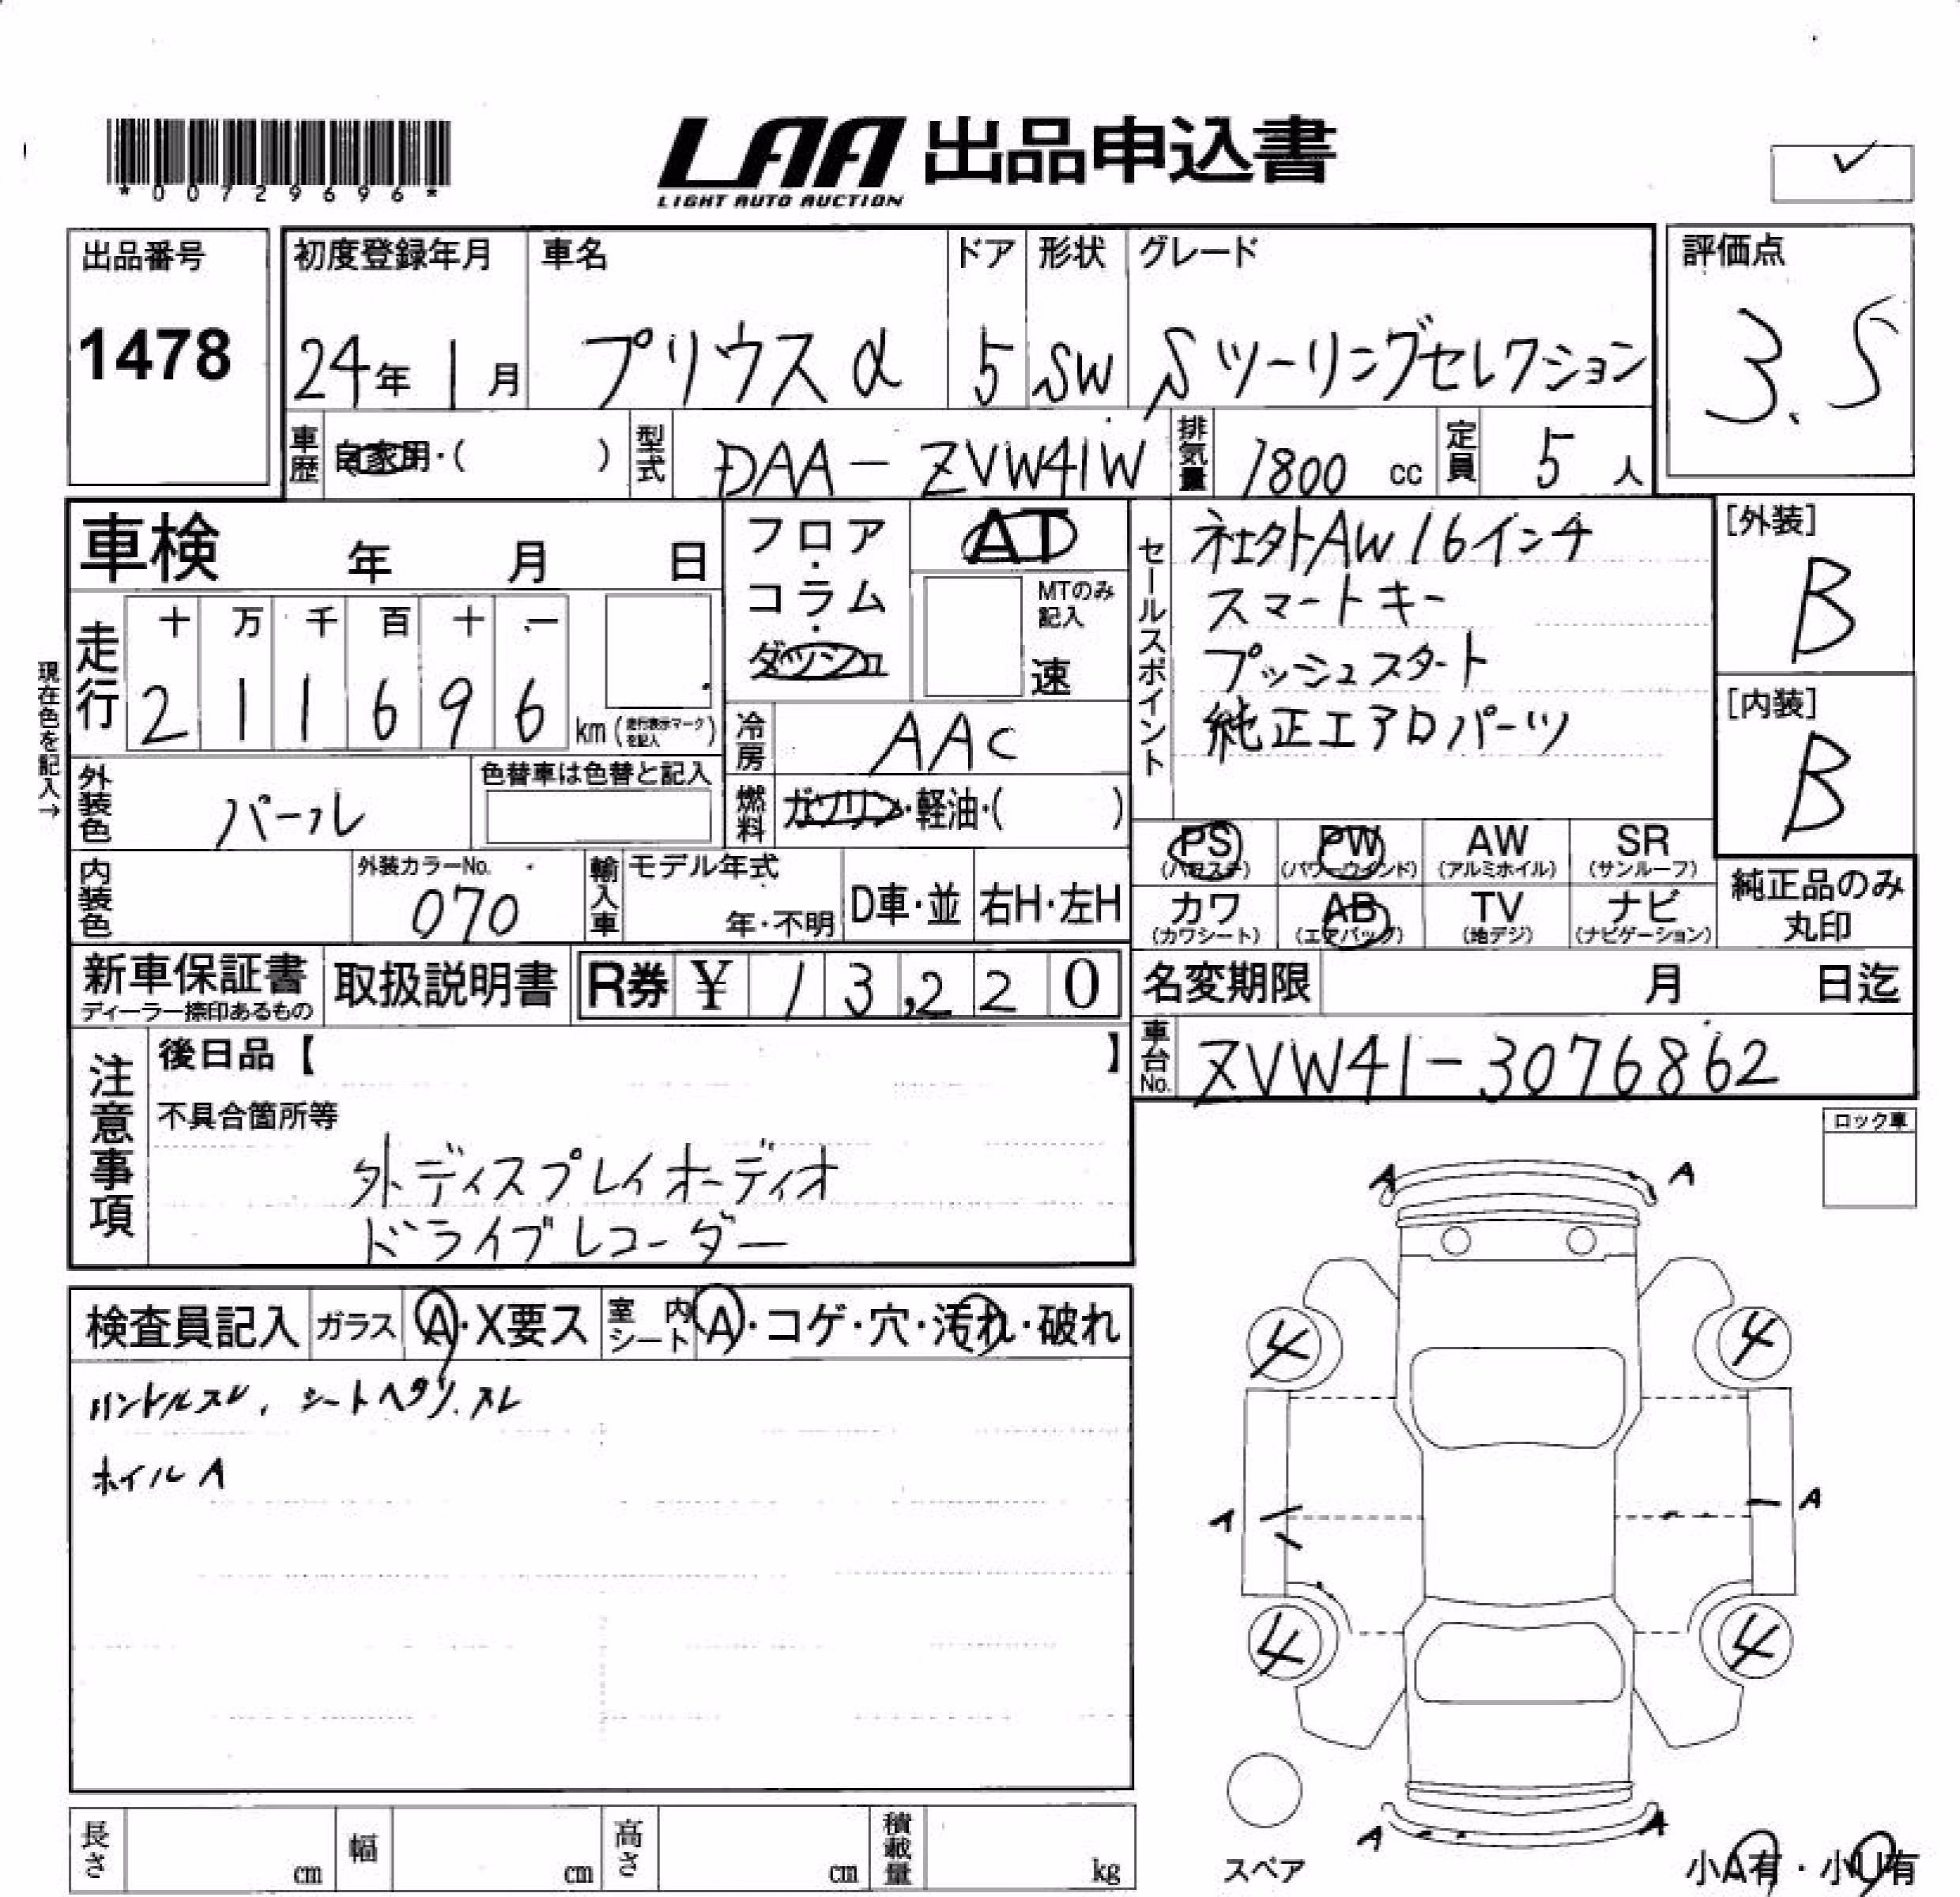 *00729696*
LAA 出品申込書
LIGHT AUTO AUCTION
✓
出品番号
1478
初度登録年月
24年 1月
車名
プリウスα
ドア
5
形状
SW
グレード
Sツーリングセレクション
評価点
3.5
車歴 自家用・( )
型式 DAA-ZVW41W
排気量 1800 cc
定員 5 人
車検 年 月 日
現在色を記入→
走行
十 万 千 百 十 一
2 1 1 6 9 6 km(走行表示マークを記入)
フロア・コラム・ダッシュ
AT
MTのみ記入
速
冷房 AAC
燃料 ガソリン・軽油・( )
セールスポイント
社外AW16インチ
スマートキー
プッシュスタート
純正エアロパーツ
[外装]
B
[内装]
B
外装色 パール
色替車は色替と記入
内装色
外装カラーNo.
070
輸入車
モデル年式
年・不明
D車・並
右H・左H
PS AW SR
PW
(パワステ) (パワーウインド) (アルミホイル) (サンルーフ)
カワ AB TV ナビ
(カワシート) (エアバッグ) (地デジ) (ナビゲーション)
純正品のみ
丸印
新車保証書
ディーラー捺印あるもの
取扱説明書
R券 ¥ 13,220
名変期限 月 日迄
車台No. ZVW41-3076862
注意事項
後日品【 】
不具合箇所等
外ディスプレイオーディオ
ドライブレコーダー
ロック車
検査員記入
ガラス A・X要ス
室内シート A・コゲ・穴・汚れ・破れ
ハンドルスレ、シートヘタリ、スレ
ホイルA
A A
4 4
A A
4 4
A A
スペア
小A有・小U有
長さ cm
幅 cm
高さ cm
積載量 kg